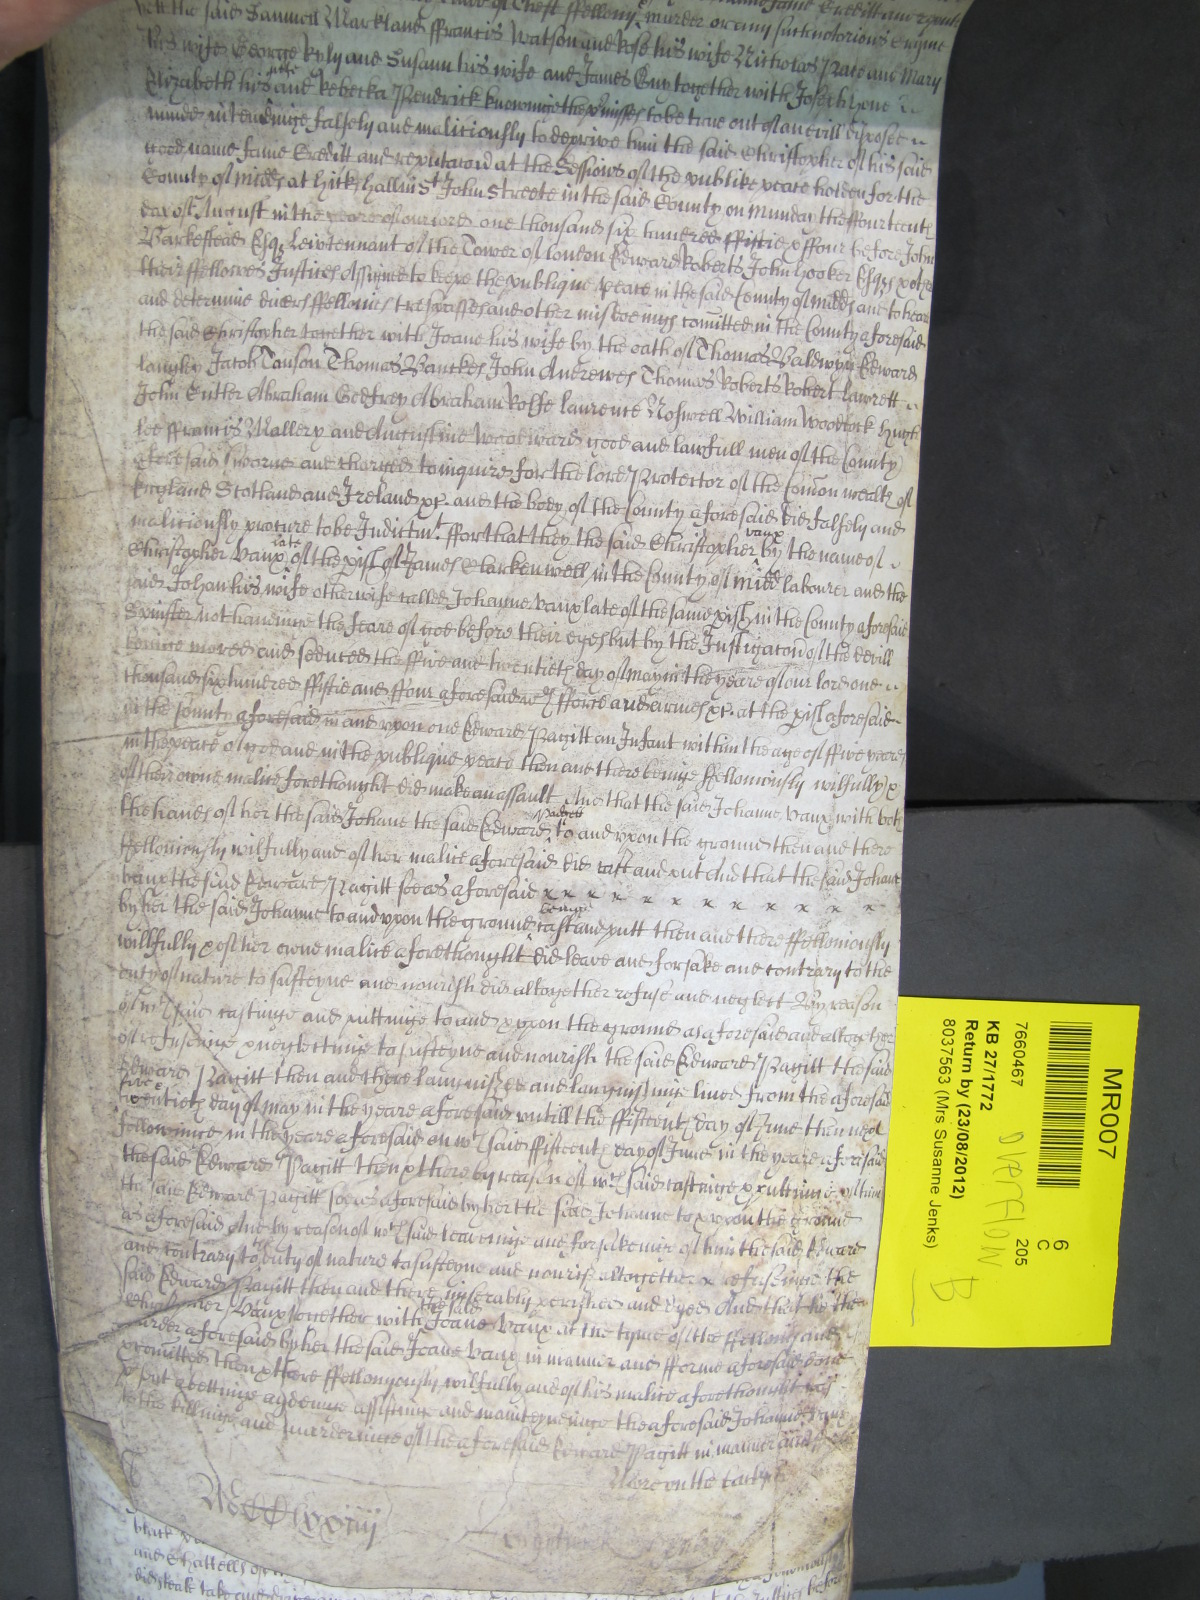 the said Samuell Markland ffrancis Watson and Rose his wife Nicholas Pate and Mary
his wife George Ryly and Susann his wife and James Guy together with Joseph
Elizabeth his wife and Rebecka Kendrick knowinge the pmisses to be true out of an evill disposed
minde intendinge falsely and maliciously to deprive him the said Christopher of his said
good name fame Creditt and reputacon at the Sessions of the publike peace holden for the
County of Midds at Hicks hall in St John Streete in the said County on Munday the ffourteenth
day of August in the yeare of our lord one thousand six hundred ffiftie & ffour before John
Barkestead Esqr Leivtennant of the Tower of london Edward Roberts John Hooker Esqrs & other
their ffellowes Justices Assigned to keepe the publique peace in the said County of Midds and to heare
and determine divers ffellonies trespasses and other misdoeings comitted in the County aforesaid
the said Christopher together with Joane his wife by the oath of Thomas Baldwyn Edward
Langley Jacob Tanson Thomas Banckes John Andrewes Thomas Roberts Robert
John Cutler Abraham Godfrey Abraham Rolfe laurence William Woodcock Hugh
lee ffrancis Mallery and Augustine Woodward good and lawfull men of the County
aforesaid sworne and charged to inquire for the lord Protector of the Comon wealth of
England Scotland and Ireland &c. and the body of the County aforesaid did falsely and
maliciously procure to be Indicted ffor that they the said Christopher vaux by the name of
Christopher Vaux late of the pish of James Clarkenwell in the County of Midd labourer and the
said Johan his wife otherwise called Johanne vaux late of the same pish in the County aforesaid
Spinster not haveinge the feare of god before their eyes but by the Instigacon of the devill
beinge moved and seduced the ffive and twentieth day of May in the yeare of our lord one
thousand six hundred ffiftie and ffour aforesaid wth fforce and armes &c. at the pish aforesaid
in the County aforesaid in and vpon one Edward Pagitt an Infant within the age of ffive yeares
in the peace of god and in the publique peace then and there beinge ffelloniously wilfully &
of their owne malice forethought did make an assault And that the said Johanne Vaux with both
the hands of her the said Johane the said Edward Pagitt to and vpon the ground then and there
ffelloniously wilfully and of her malice aforesaid did cast and put And that the said Johane
Vaux the said Edward Pagitt soe as aforesaid x x x x x x x x x x x x
by her the said Johanne to and vpon the ground beinge cast and putt then and there ffelloniously
willfully & of her owne malice aforethought did leave and forsake and contrary to the
duty of nature to susteyne and nourish did altogether refuse and neglect By reason
of wch said castinge and puttinge to and vpon the ground as aforesaid and altogether
of refuseinge & neglectinge to susteyne and nourish the said Edward Pagitt the said
Edward Pagitt then and there languished and languishinge lived from the aforesaid
five &
twentieth day of May in the yeare aforesaid vntill the ffifteenth day of June then next
followinge in the yeare aforesaid on wch said ffifteenth day of June in the yeare aforesaid
the said Edward Pagitt then & there by reason of wch said castinge & puttinge of him
the said Edward Pagitt soe as aforesaid by her the said Johanne to & vpon the ground
as aforesaid And by reason of wch said leaveinge and forsakeinge of him the said Edward
and contrary to ye duty of nature to susteyne and nourish altogether refuseinge the
said Edward Pagitt then and there miserably perished and dyed And that he the
Christopher Vaux together with the said Joane Vaux at the tyme of the ffellony and
murder aforesaid by her the said Joane Vaux in manner and fforme aforesaid done
& comitted then & there ffelloniously wilfully and of his malice aforethought was
abettinge aydeinge assistinge and mainteyneinge the aforesaid Johanne Vaux
to the killinge and murderinge of the aforesaid Edward Pagitt in manner and
More on the back
MCClxxiiij
and Chattells of
did steale take and
MR007
7660467
6
C
205
OVERFLOW
KB 27/1772
Return by (23/08/2012)
8037563 (Mrs Susanne Jenks)
B